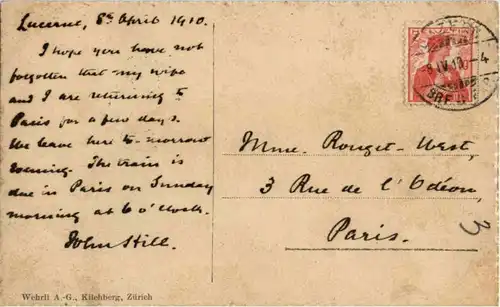 Lucerne, 8th April 1910.
I hope you have not
forgotten that my wife
and I are returning to
Paris for a few days.
We leave here to-morrow
evening. The train is
due in Paris on Sunday
morning at 6 o'clock.
John Hill.
Mme. Rouget-West,
3 Rue de l'Odéon,
Paris.
3
Wehrli A.-G., Kilchberg, Zürich